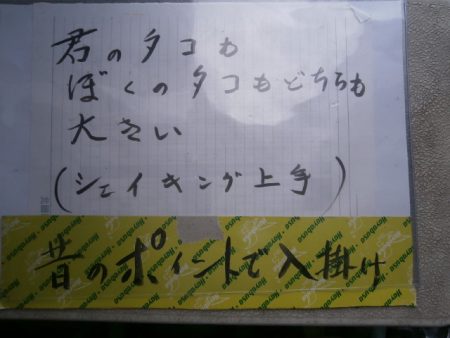 君のタコも
ぼくのタコもどちらも
大きい
(シェイキング上手)
昔のポイントで入掛け